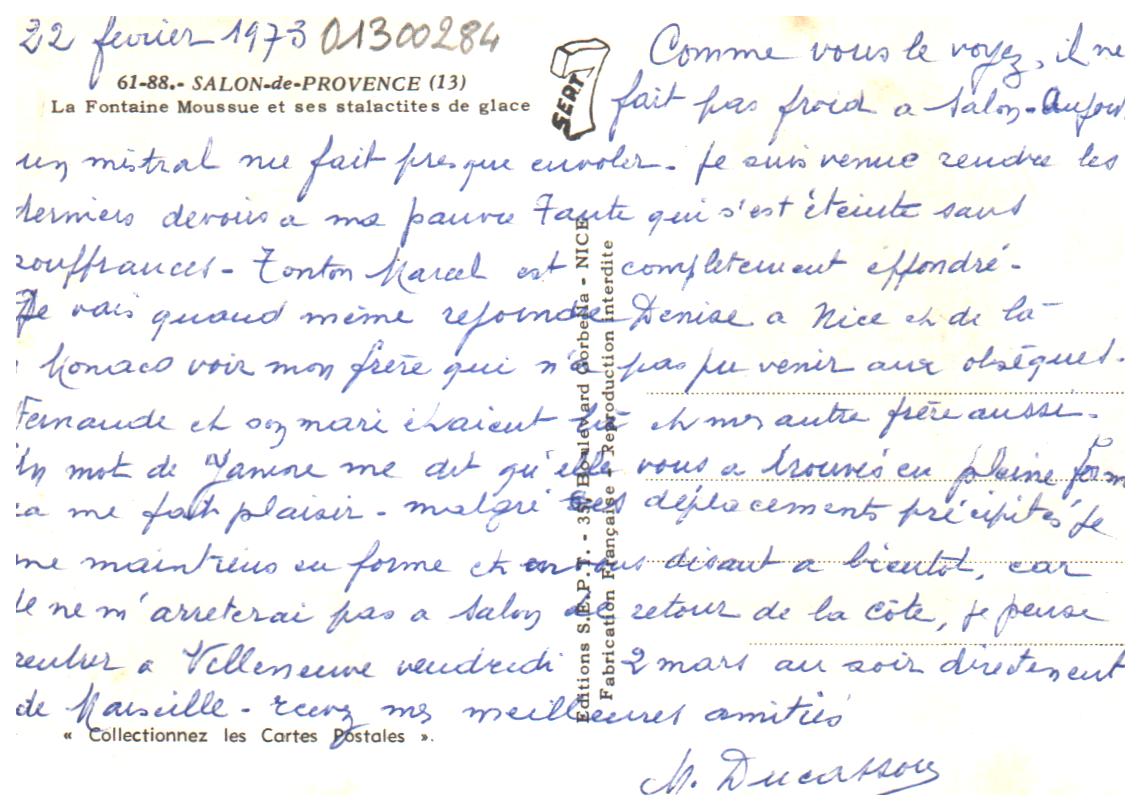 22 fevrier 1973 01300284
61-88.- SALON-de-PROVENCE (13)
La Fontaine Moussue et ses stalactites de glace
SEPT
Comme vous le voyez, il ne
fait pas froid a Salon - Aujour
un mistral me fait presque envoler - Je suis venue rendre les
derniers devoirs a ma pauvre Tante qui s'est éteinte sans
souffrances - Tonton Marcel est complètement effondré -
Je vais quand même rejoindre Denise a Nice et de là
Monaco voir mon frère qui n'a pas pu venir aux obsèques.
Fernande et son mari étaient là et mes autre frère aussi -
Un mot de Janine me dit qu'elle vous a trouvés en pleine form
ca me fait plaisir - malgré ces déplacements précipités Je
me maintiens en forme et en vous disant a bientot, car
Je ne m'arreterai pas a Salon de retour de la côte, je pense
rentrer a Villeneuve vendredi 2 mars au soir directement
de Marseille - recevez mes meilleures amitiés
M. Ducassou
« Collectionnez les Cartes Postales ».
Editions S.E.P.T. - 35, Boulevard Gorbella - NICE
Fabrication Française - Reproduction interdite